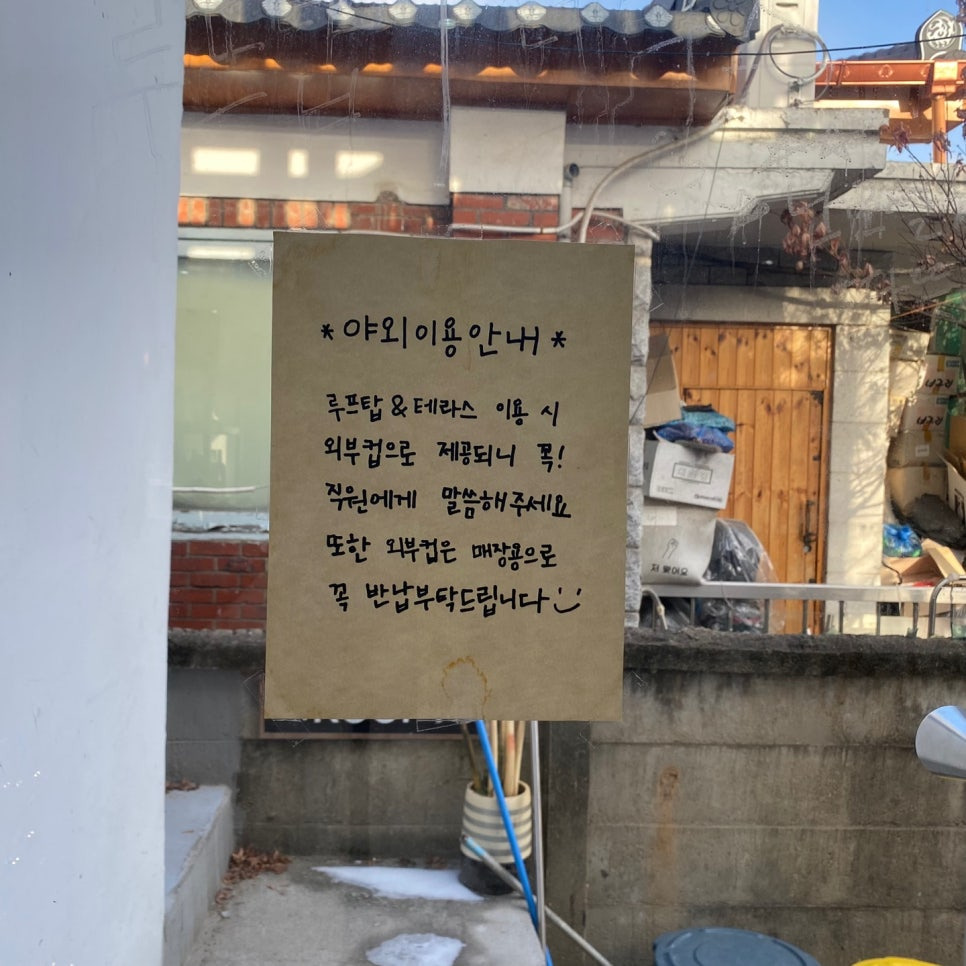 * 야외이용안내 *
루프탑 & 테라스 이용 시
외부컵으로 제공되니 꼭!
직원에게 말씀해주세요
또한 외부컵은 매장용으로
꼭 반납부탁드립니다 :)